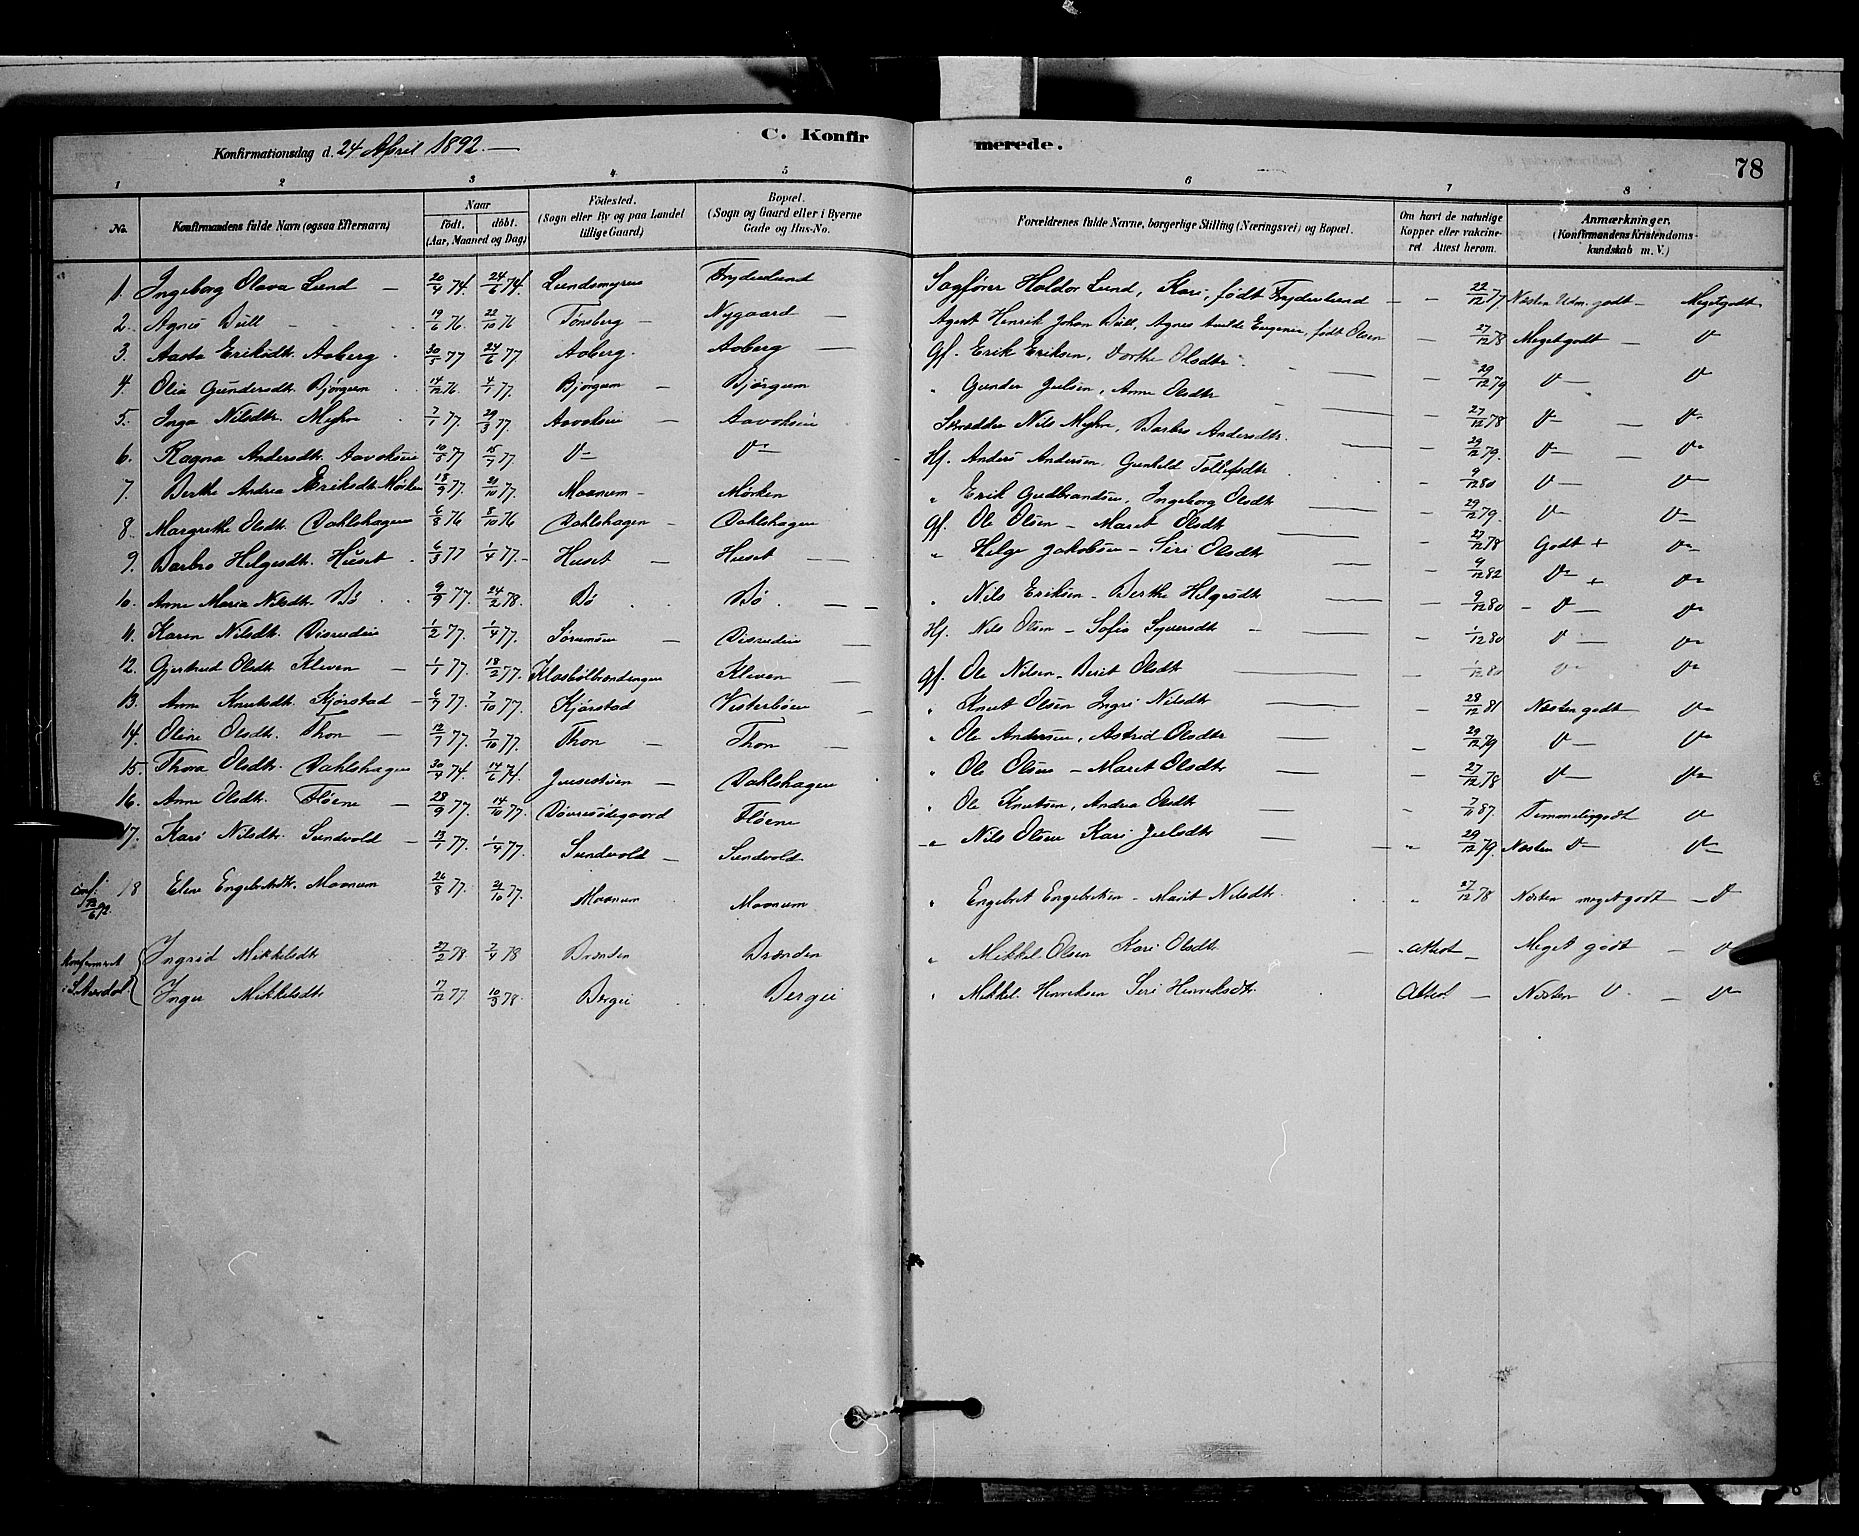 C. Konfirmerede.
Konfirmationsdag d. 24 April 1892. —
78
1 2 3 4 5 6 7 8
No. Konfirmandens fulde Navn (ogsaa Efternavn) Naar födt. döbt. (Aar, Maaned og Dag) Födested. (Sogn eller By og paa Landet tillige Gaard) Bopæl. (Sogn og Gaard eller i Byerne Gade og Hus-No. Forældrenes fulde Navne, borgerlige Stilling (Næringsvei) og Bopæl. Om havt de naturlige Kopper eller vaccineret Attest herom. Anmærkninger, (Konfirmandens Kristendomskundskab m. V.)
1. Ingeborg Olava Lund — 20/4 74. 24/6 74. Lundsmyren Frydenlund Sagfører Haldor Lund, Kari, født Frydenlund — — 22/12 77 Næsten Udm. godt — Megetgodt
2. Agnes Bull 19/6 76 22/10 76 Tönsberg — Nygaard — Agent Henrik Johan Bull, Agnes Eugenie, født Olsen — 27/12 78 Meget godt — V
3. Aasta Eriksdtr. Aaberg 30/3 77 24/6 77 Aaberg. Aaberg — Gf. Erik Eriksen, Dorthe Olsdtr. — 29/12 79 V — V
4. Olia Gundersdtr. Bjørgum 14/12 76. 4/1 77. Bjørgum — Bjørgum " Gunder Juelsen, Anne Olsdtr — 27/12 78 V — V
5. Inga Nilsdtr. Myhre 7/1 77. 29/3 77. Aavoksen — Aavoksen Skrædder Nils Myhre, Barbro Andersdtr. — 29/12 79. V — V
6. Ragna Andersdtr. Aavoksen 10/5 77 15/7 77. V — V Hf. Anders Andersen, Gunhild Tollefsdtr 9/12 80 V — V
7. Berthe Andrea Eriksdtr. Mørken 18/9 77. 21/10 77. Moanum — Mørken " Erik Gudbrandsen, Ingeborg Olsdtr — 29/12 79. V — V
8. Margrethe Olsdtr. Dahlshagen 6/8 76 8/10 76 Dahlshagen — Dahlshagen Gf. Ole Olsen — Marit Olsdtr — 27/12 78 Godt + V
9. Barbro Helgesdtr. Huset 6/3 77 1/4 77. Huset — Huset — " Helge Jakobsen — Siri Olsdtr — 9/12 82 V + V
10. Anne Maria Nilsdtr. Bø 9/9 77. 24/2 78. Bø Bø — " Nils Eriksen — Berthe Helgesdtr — 9/12 80 V — V
11. Karen Nilsdtr. Disrudeie 1/2 77. 1/4 77. Sørumseie — Disrudeie Hf. Nils Olsen — Sofia Syversdtr — 1/12 80 V — V
12. Gjertrud Olsdtr. Kleven — 1/1 77. 18/2 77. Klosbøltrondengen Kleven — Gf. Ole Nilsen — Berit Olsdtr — 1/12 80 V V
13. Anne Knutsdtr. Kjørstad — 6/7 77. 7/10 77. Kjørstad Vesterbøen — " Knut Olsen Ingri Nilsdtr — 28/12 81 Næsten godt V
14. Oline Olsdtr. Thon — 12/7 77. 7/10 77. Thon — Thon — " Ole Andersen, Astrid Olsdtr — 29/12 79 V — V
15. Thora Olsdtr. Dahlshagen 30/4 74. 14/6 74. Dahlshagen " Ole Olsen — Marit Olsdtr — 27/12 78 V — V
16. Anne Olsdtr. Fløene — 28/9 77. 14/10 77. Fløene " Ole Knutsen, Andrea Olsdtr — " 7/11 87. Temmeliggodt V
17. Kari Nilsdtr. Sundvold — 13/1 77. 1/4 77. Sundvold — Sundvold " Nils Olsen Kari Juelsdtr — " 29/12 79. Næsten V — V
Conf. 12/6 92. 18 Eline Engebretsdtr. Moanum 26/8 77. 21/10 77. Moanum Moanum " Engebret Engebretsen — Marit Nilsdtr. " 27/12 78 Næsten meget godt — V
Konfirmeret i S. Aurdal. Ingrid Mikkelsdtr 27/2 78 7/4 78 Brænden Brænden " Mikkel Olsen Kari Olsdtr — Attest — Meget godt — V
Inger Mikkelsdtr 17/12 77 10/3 78. Bergei Bergei " Mikkel Henriksen Siri Henriksdtr. Attest — Næsten V — V